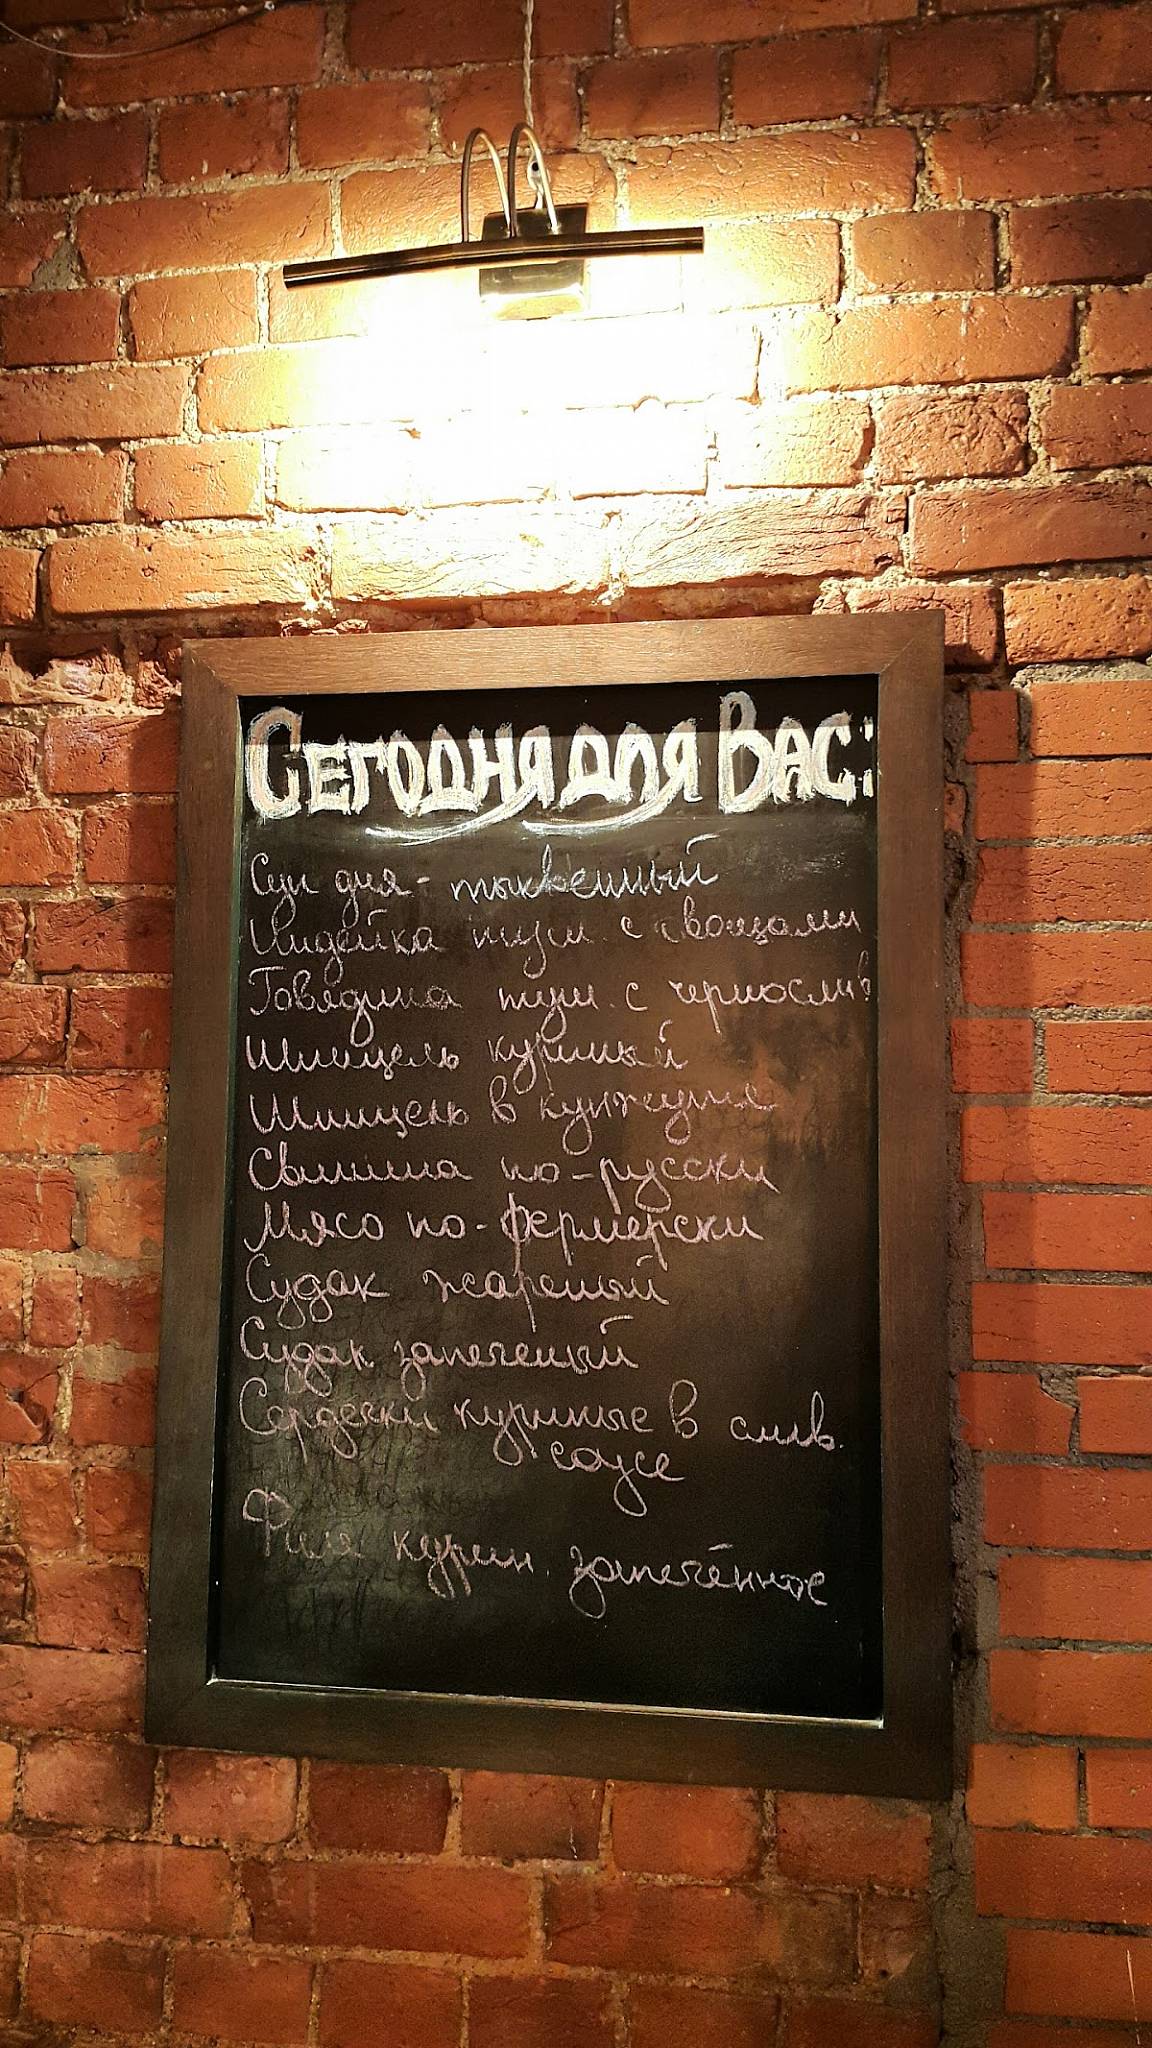 Сегодня для Вас:
Суп дня - тыквенный
Индейка туш. с овощами
Говядина туш. с чернослив
Шницель куриный
Шницель в кунжуте
Свинина по-русски
Мясо по-фермерски
Судак жареный
Судак запеченый
Сердечки куриные в слив.
соусе
Филе курин. запечённое